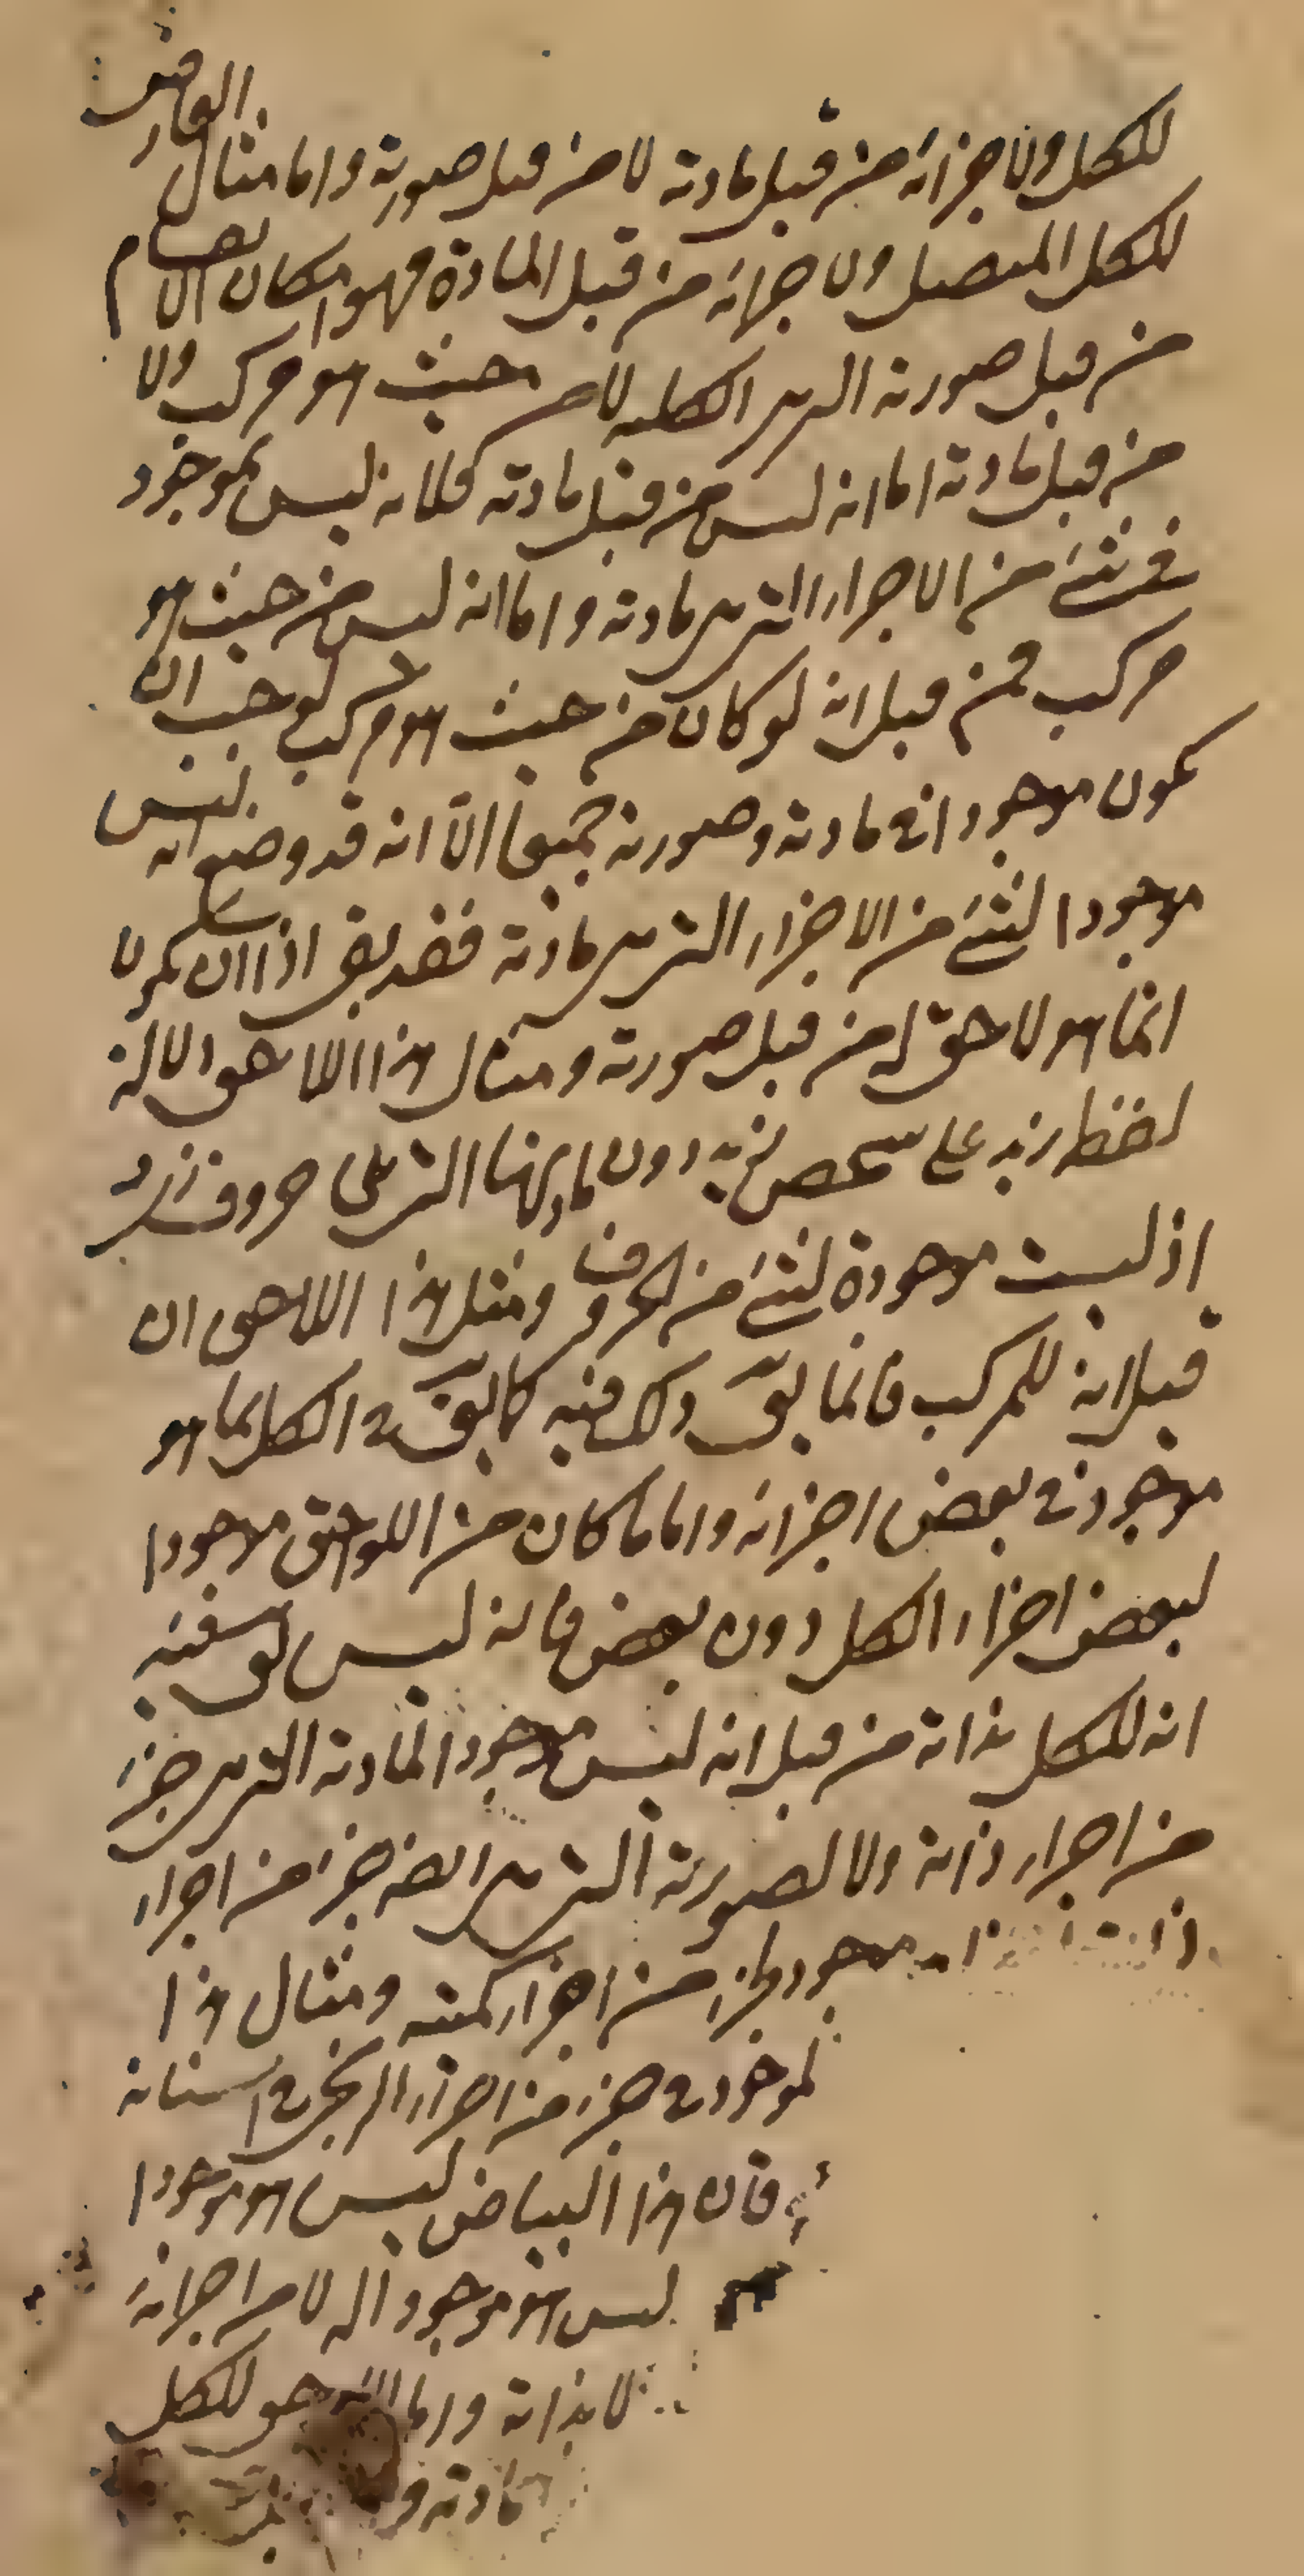 للكل ولاجزائه من قبل مادته لا من قبل صورته واما مثال العارض
للكل المتصل ولاجزائه من قبل المادة فهو امكان الانقسام
من قبل صورته التى هى الكلية لا من حيث هو مركب ولا
من قبل مادته اما انه ليس من قبل مادته فلانه ليس بموجود
فى شئ من الاجزاء التى هى مادته واما انه ليس من حيث هو
مركب فمن قبل انه لو كان من حيث هو مركب لوجب ان
يكون موجودا فى مادته وصورته جميعا الا انه قد وضع انه ليس
موجودا لشئ من الاجزاء التى هى مادته فقد بقى اذا ان يكون
انما هو لاحق له من قبل صورته ومثال هذا اللاحق دلالة
لفظ زيد على شخص زيد دون مادتها التى هى حروف زيد
اذ ليست موجودة لشئ من الحروف ومثل هذا اللاحق ان
قيل انه للمركب فانما يق ذلك فيه كما يق فى الكل بما هو
موجود فى بعض اجزائه واما ما كان من اللواحق موجودا
لبعض اجزاء الكل دون بعض فانه ليس يق فيه
انه للكل بذاته من قبل انه ليس موجودا لمادته التى هى جزء
من اجزاء ذاته ولا لصورته التى هى ايضا جزء من اجزاء
ذاته موجود لجزء من اجزاء كميته ومثال هذا
الموجود فى جزء من اجزاء الزنجى فى اسنانه
فان هذا البياض ليس هو موجودا
ليس هو موجودا له لا من اجزائه
لا بذاته واما اللاحق للكل
مادته